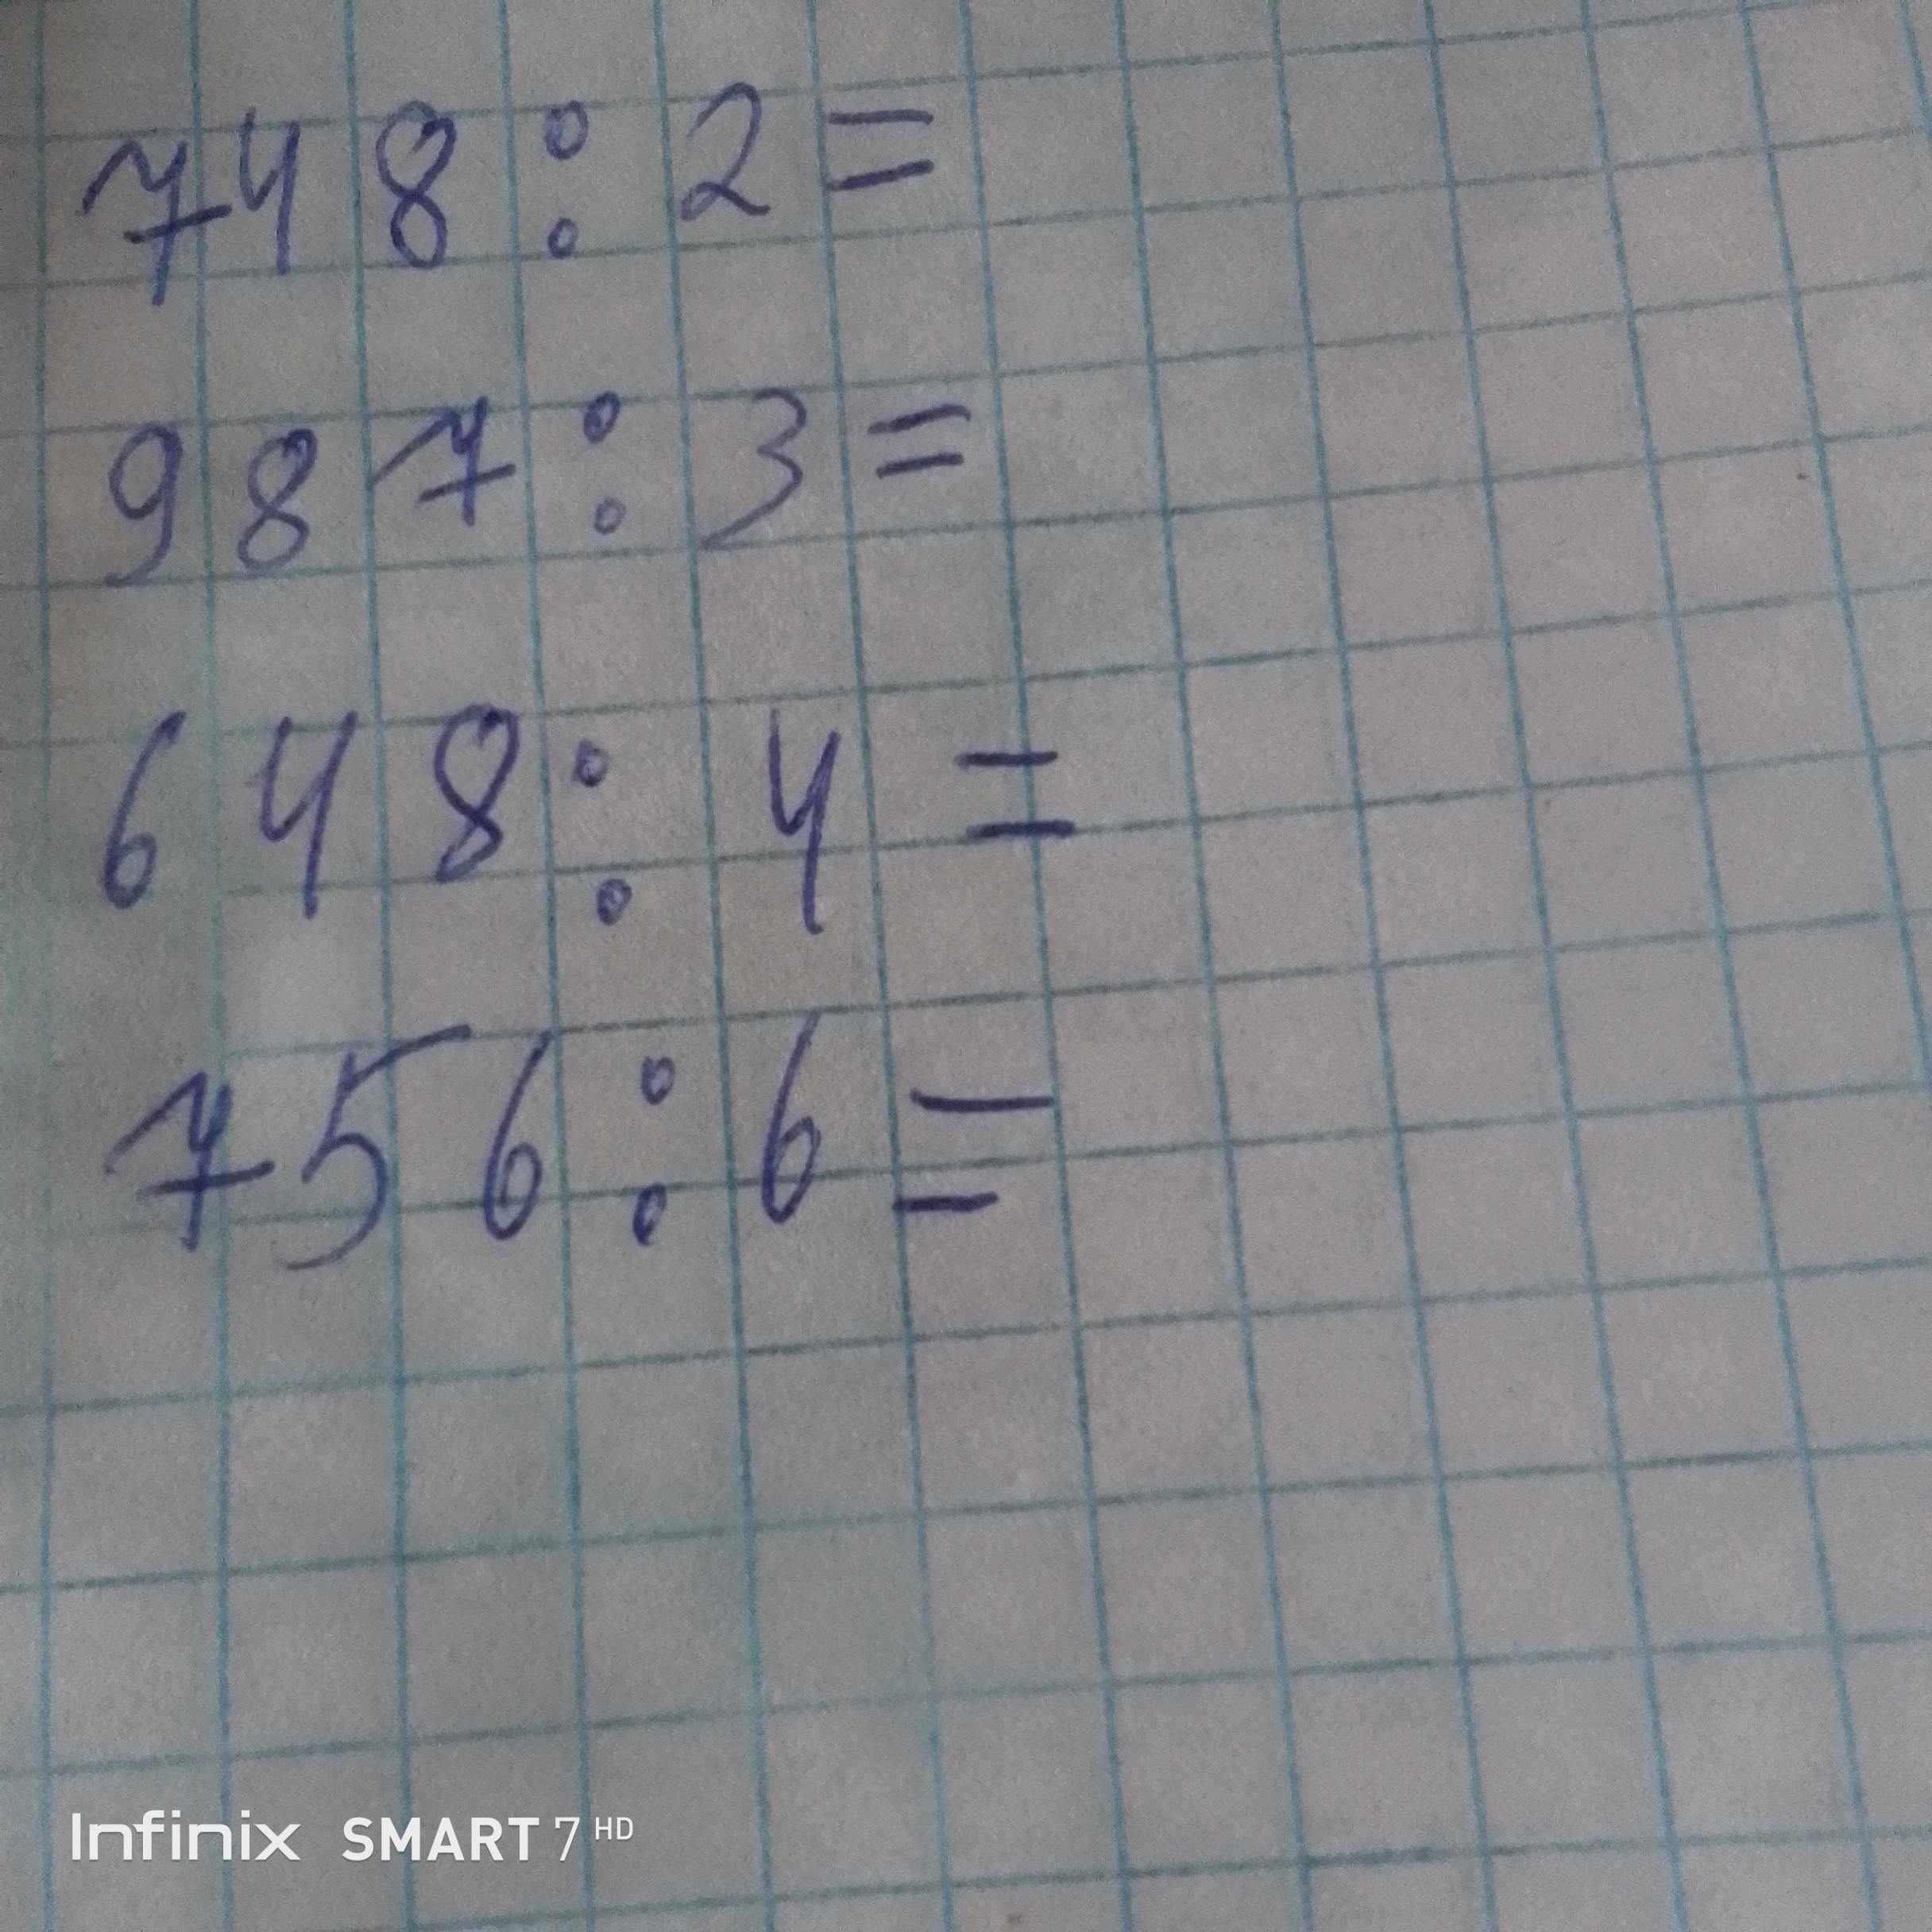 748:2=
987:3=
648:4=
756:6=
Infinix SMART 7 HD